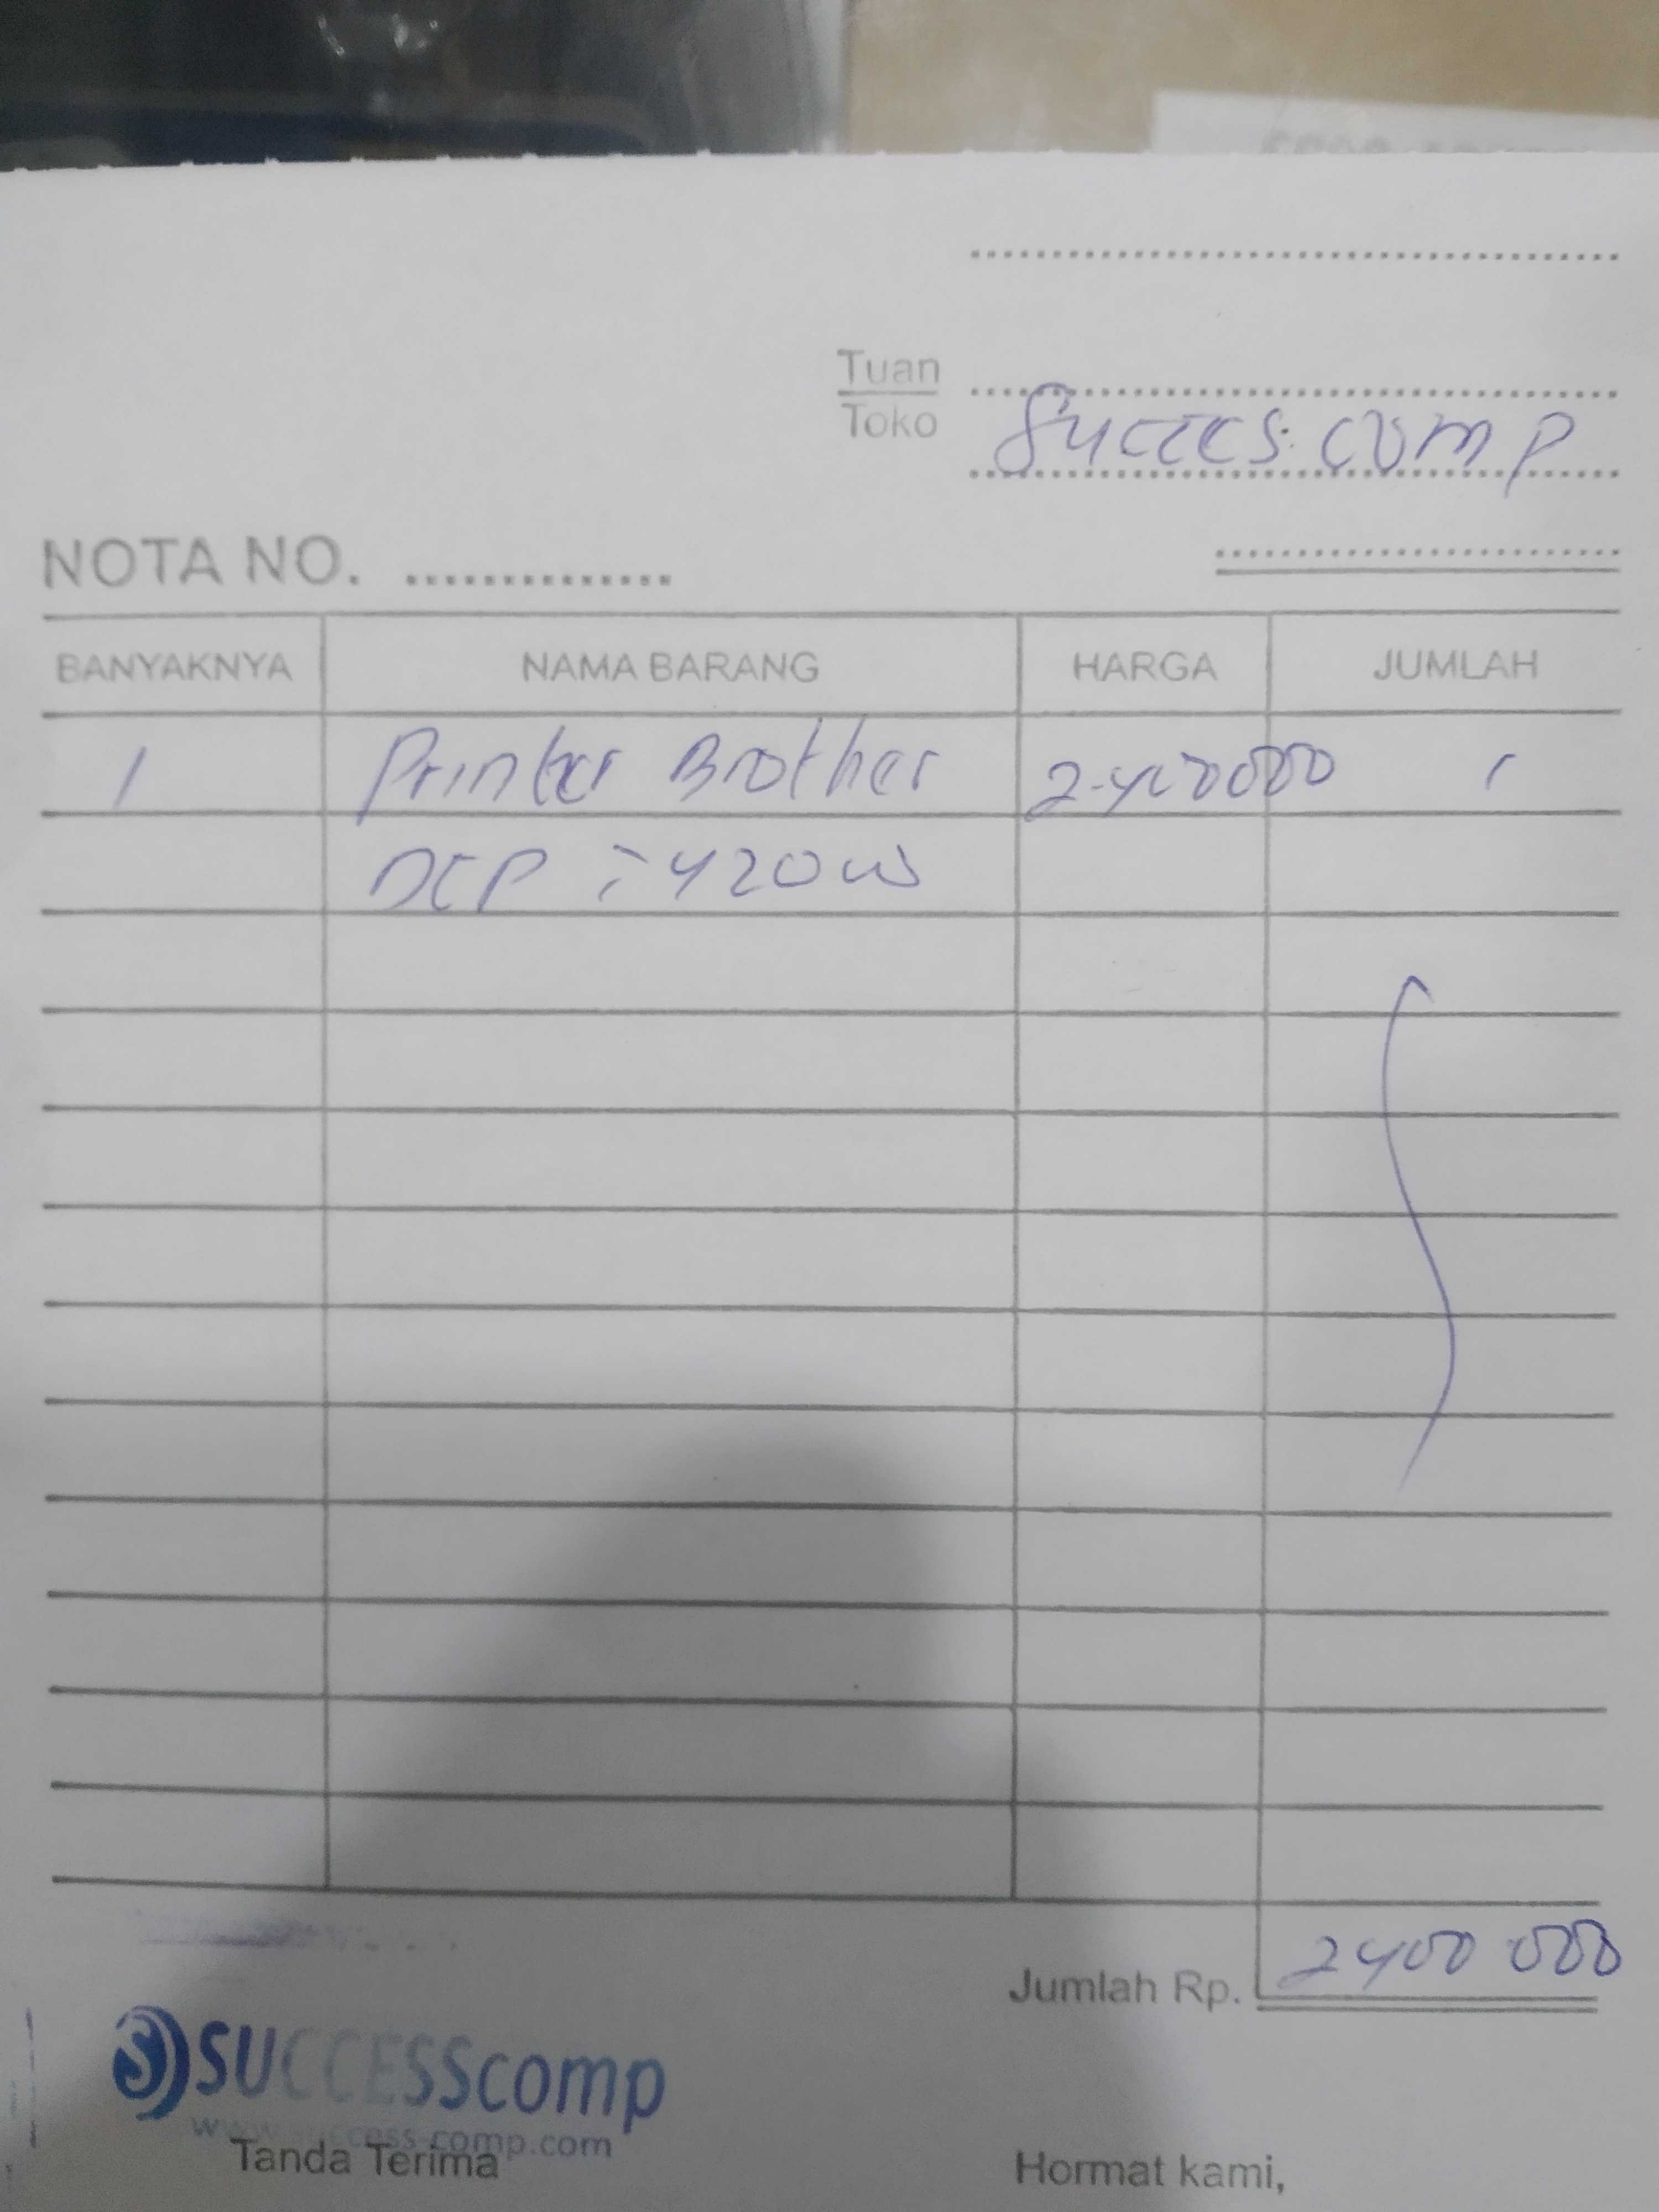 Tuan
Toko Succes. comp
NOTA NO. ..............
BANYAKNYA NAMA BARANG HARGA JUMLAH
1 Printer Brother 2.400000
DCP : 420 W
Jumlah Rp. 2400 000
SUCCESScomp
www.success-comp.com
Tanda Terima Hormat kami,